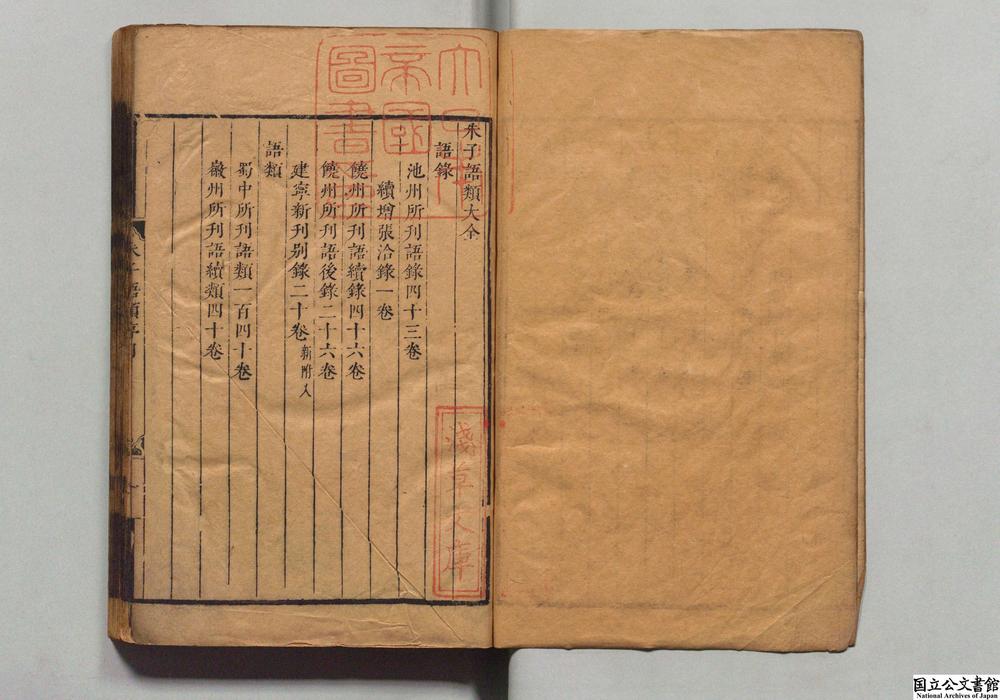 朱子語類大全
語錄
池州所刋語錄四十三卷
續增張洽錄一卷
饒州所刋語續錄四十六卷
饒州所刋語後錄二十六卷
建寧新刋别錄二十卷新附入
語類
蜀中所刋語類一百四十卷
徽州所刋語續類四十卷
大日本
帝國
圖書
淺草文庫
国立公文書館
National Archives of Japan